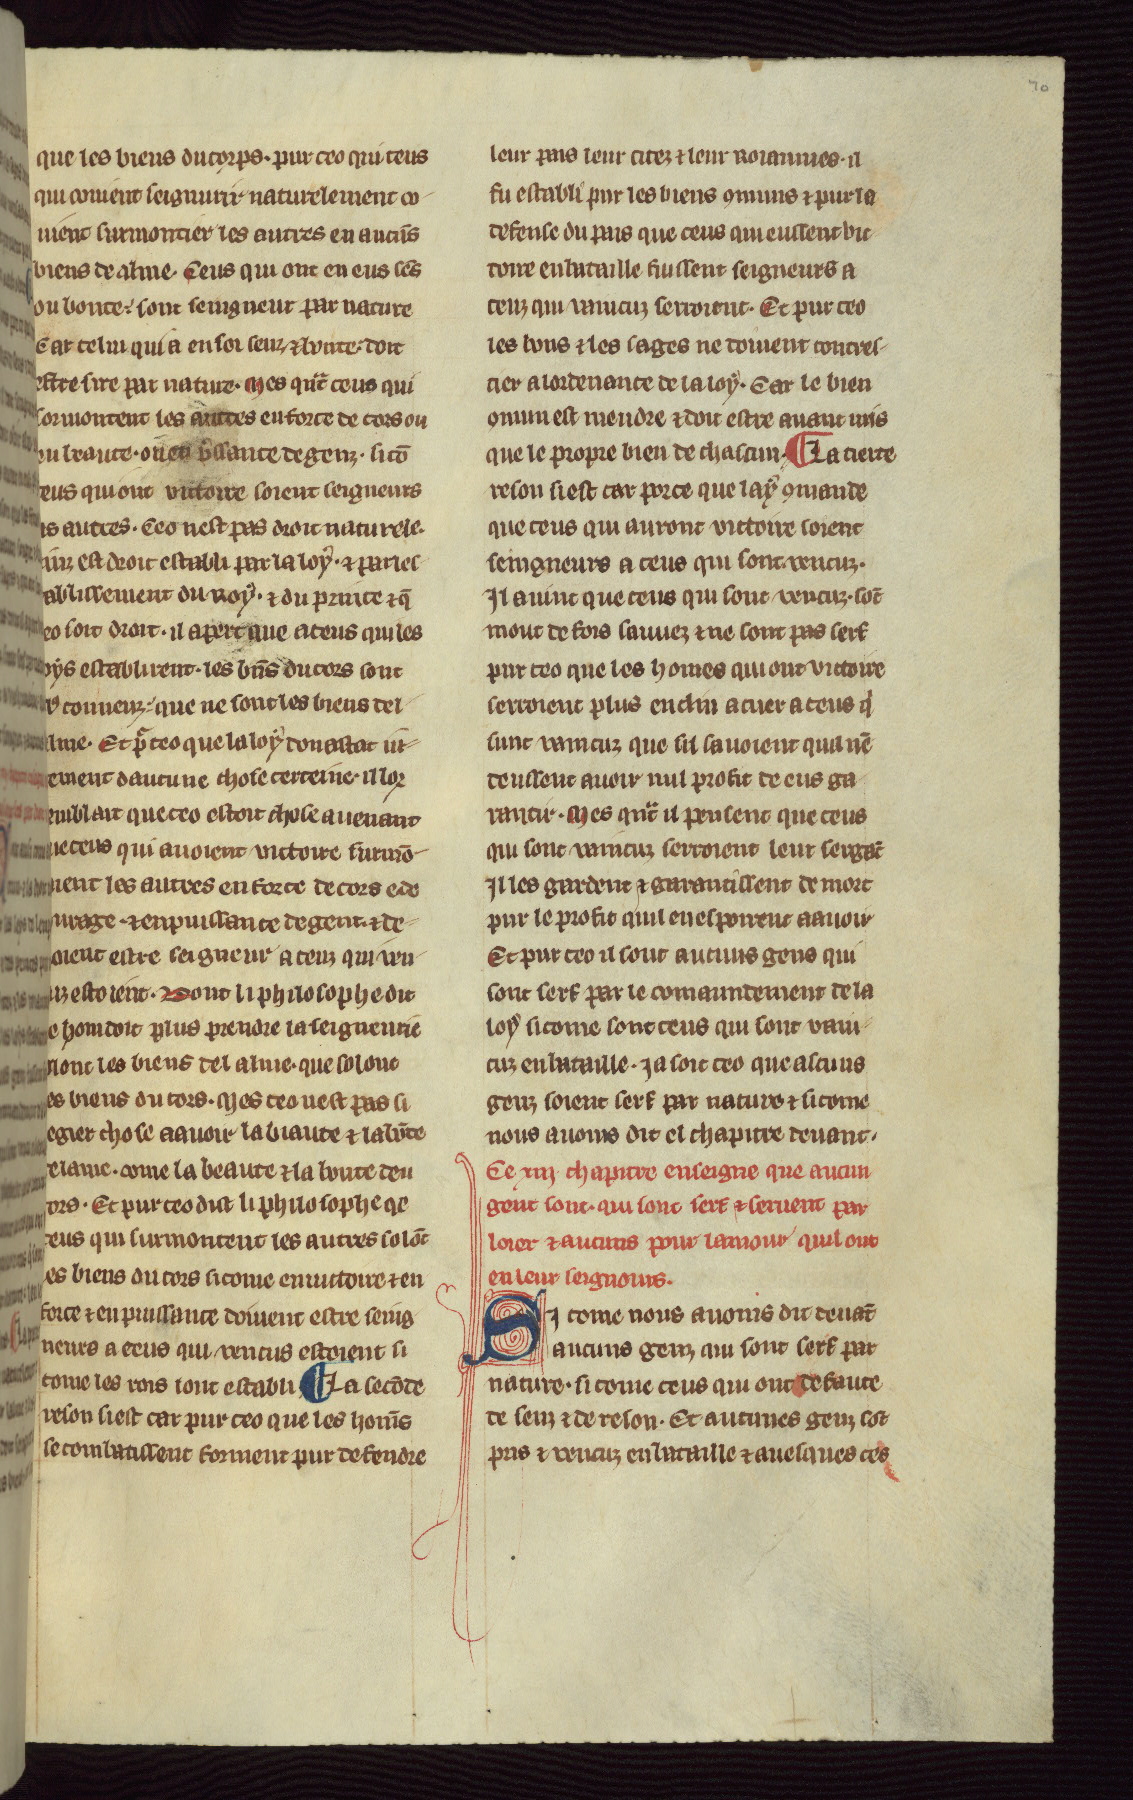 70
que les biens du corps. pur ceo qui ceus
qui couient seignurir naturelement co-
uient surmontier les autres en aucūs
biens de alme. Ceus qui ont en eus sēs
ou bonte. sont seingneur par nature
Car celui qui a en soi senz ⁊ bonte. doit
estre sire par nature. Mes qūt ceus qui
sormontent les autres en force de cors ou
en beaute. ou en ssance de genz. si cō
ceus qui ont victoire soient seigneurs
as autres. Ceo nest pas droit naturele.
einz est droit establi par la loy. ⁊ par les
tablissement du roy. ⁊ du prince ⁊ q̄
ceo soit droit. il apert que a ceus qui les
loys establirent. les bn̄s du cors sont
conneuz. que ne sont les biens del
alme. Et p̄ ceo que la loy
ement daucune chose certeine. il lor
semblait que ceo estoit chose auenant
que ceus qui auoient victoire surmō-
tient les autres en force de cors e de
curage. ⁊ en puissance de gent. ⁊ de-
uoient estre seigneur a ceuz qui ven-
cuz estoient. Dont li philosophe dit
e hom doit plus prendre la seigneurie
les biens del alme. que solonc
les biens du cors. Mes ceo nest pas si
legier chose a auoir la biaute ⁊ la bōte
de lame. come la beaute ⁊ la bonte deu
cors. Et pur ceo dist li philosophe qe
ceus qui surmontent les autres solōc
les biens du cors si come en victoire ⁊ en
force ⁊ en puissance doiuent estre seing
neurs a ceus qui vencus estoient si
come les rois lont establi. La secōde
reson si est car pur ceo que les hom̄s
se combatissent forment pur defendre
leur pais leur citez ⁊ leur roiaumes. il
fu establi pur les biens 9muns ⁊ pur la
defense du pais que ceus qui eussent vic
toire en bataille fussent seigneurs a
ceuz qui vaincuz serroient. Et pur ceo
les bons ⁊ les sages ne doiuent contres-
tier a lordenance de la loy. Car le bien
omun est mendre ⁊ doit estre auant mis
que le propre bien de chascun. La tierce
reson si est car porce que la ley 9mande
que ceus qui auront victoire soient
seingneurs a ceus qui sont vencuz.
Il auint que ceus qui sont vencuz. sōt
mout de fois sauuez ⁊ ne sont pas serf
pur ceo que les homes qui ont victoire
serroient plus enclin a tuer a ceus q̄
sunt vaincuz que sil sauoient quil nē
deussent auoir nul profit de eus ga
rantir. Mes qūt il pensent que ceus
qui sont vaincuz serroient leur sergāt
Il les gardent ⁊ garantissent de mort
pur le profit quil en esporent a auoir
Et pur ceo il sont aucuns gens qui
sont serf par le comaundement de la
loy si come sont ceus qui sont vain-
cuz en bataille. Ja soit ceo que ascuns
genz soient serf par nature ⁊ si come
nous auoms dit el chapitre deuant.
Ce xiij chapitre enseigne que aucun
gent sont. qui sont serf ⁊ seruent par
loier ⁊ aucuns pour lamour quil ont
en leur seignours.
Si come nous auoms dit deuāt
aucuns genz qui sont serf par
nature. si come ceus qui ont defaute
de senz ⁊ de reson. Et aucunes genz sōt
pris ⁊ vencuz en bataille ⁊ auesques ces